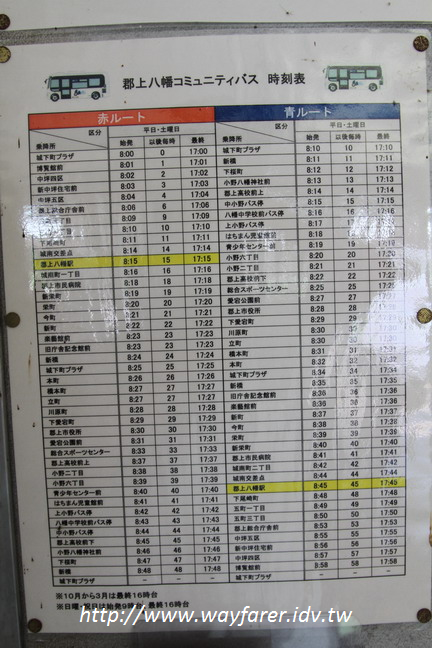 郡上八幡コミュニティバス 時刻表
赤ルート 青ルート
区分 平日・土曜日 区分 平日・土曜日
乗降所 始発 以後毎時 最終 乗降所 始発 以後毎時 最終
城下町プラザ 8:00 0 17:00 城下町プラザ 8:10 10 17:10
博覧館前 8:01 1 17:01 新橋 8:11 11 17:11
中坪四区 8:02 2 17:02 下桜町 8:12 12 17:12
新中坪住宅前 8:03 3 17:03 小野八幡神社前 8:13 13 17:13
中坪五区 8:04 4 17:04 郡上高校前上 8:14 14 17:14
郡上総合庁舎前 8:06 6 17:06 上小野バス停 8:15 15 17:15
8:09 9 17:09 八幡中学校前バス停 8:16 16 17:16
8:10 10 17:10 上小野バス停 8:17 17
下尾崎町 8:11 11 17:11 はちまん児童館前 8:18
城南交差点 8:14 14 17:14 青少年センター前 8:19 19 17:19
郡上八幡駅 8:15 15 17:15 小野六丁目 8:20 20 17:20
城南町一丁目 8:16 16 17:16 小野二丁目 8:21 21 17:21
郡上市民病院 8:18 18 17:18 郡上高校前下 8:22 22 17:22
新栄町 8:19 19 17:19 総合スポーツセンター 8:26
栄町 8:20 20 17:20 愛宕公園前 8:28 28 17:28
今町 郡上市役所 8:29 29 17:29
新町 8:22 22 17:22 下愛宕町 8:29
楽藝館前 8:23 23 17:23 川原町 8:30 30
旧庁舎記念館前 8:23 23 17:23 立町
新橋 8:24 24 17:24 橋本町 8:31 31 17:31
城下町プラザ 8:25 24 17:25 本町 8:32 32 17:32
本町 8:26 26 17:26 城下町プラザ 8:34 34 17:34
橋本町 8:27 27 17:27 新橋 8:35 35 17:35
立町 8:27 27 17:27 旧庁舎記念館前 8:36 36 17:36
川原町 8:28 28 17:28 楽藝館前 8:36 36 17:36
下愛宕町 8:29 29 17:29 新町 8:37 37 17:37
郡上市役所 8:30 30 17:30 今町 8:38 38 17:38
愛宕公園前 8:31 31 17:31 栄町 8:39 39 17:39
総合スポーツセンター前 8:33 33 17:33 新栄町 8:40 40 17:40
郡上高校前上 8:37 37 17:37 郡上市民病院 8:41 41 17:41
小野二丁目 8:38 38 17:38 城南町二丁目 8:42 42 17:42
小野六丁目 8:39 39 17:39 城南交差点 8:44 44 17:44
青少年センター前 8:40 40 17:40 郡上八幡駅 8:45 45 17:45
はちまん児童館前 8:41 41 17:41 下尾崎町 8:48 48 17:48
上小野バス停 8:42 42 17:42 五町一丁目 8:49 49 17:49
八幡中学校前バス停 8:43 43 17:43 五町三丁目 8:50 50 17:50
上小野バス停 8:44 44 17:44 郡上総合庁舎前 8:53 53 17:53
郡上高校前下 8:45 44 17:45 中坪五区 8:55 55 17:55
小野八幡神社前 8:46 45 17:46 新中坪住宅前 8:56 56 17:56
下桜町 8:47 47 17:47 中坪四区 8:58 58 17:58
新橋 8:48 48 17:48 博覧館前 8:58 58 17:58
城下町プラザ － － － 城下町プラザ － － －
※10月から3月は最終16時台
※日曜・祝日は始発9時台、最終16時台
http://www.wayfarer.idv.tw